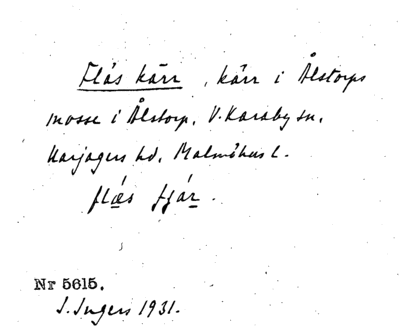 Flås kärr, kärr i Ålstorps
mosse i Ålstorp, V. Karaby sn,
Harjagers hd, Malmöhus l.
flæs fjár.
Nr 5615.
I. Ingers 1931.